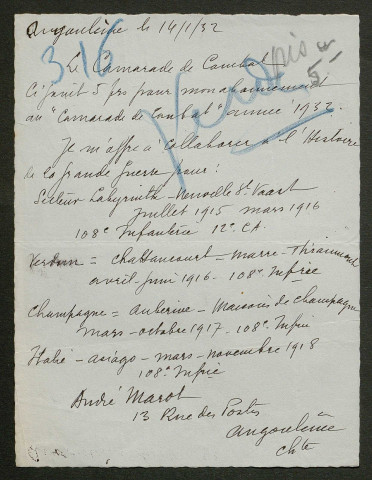 Angoulême le 14/1/32
316
Le Camarade de Combat
Ci joint 5 frs pour mon abonnement
au "Camarade de Combat" année 1932.
Je m'offre à collaborer à l'Histoire
de la grande Guerre pour :
Secteur Labyrinthe - Neuville St Vaast
juillet 1915 mars 1916
108e Infanterie 12e C.A.
Verdun = Chattancourt - Marre - Thiaumont
avril - juin 1916 - 108e Infrie
Champagne = Auberive - Maisons de Champagne
Mars - octobre 1917 - 108e Infrie
Italie - Asiago - mars - novembre 1918
108e Infrie
André Marot
13 Rue des Postes
Angoulême
Chte